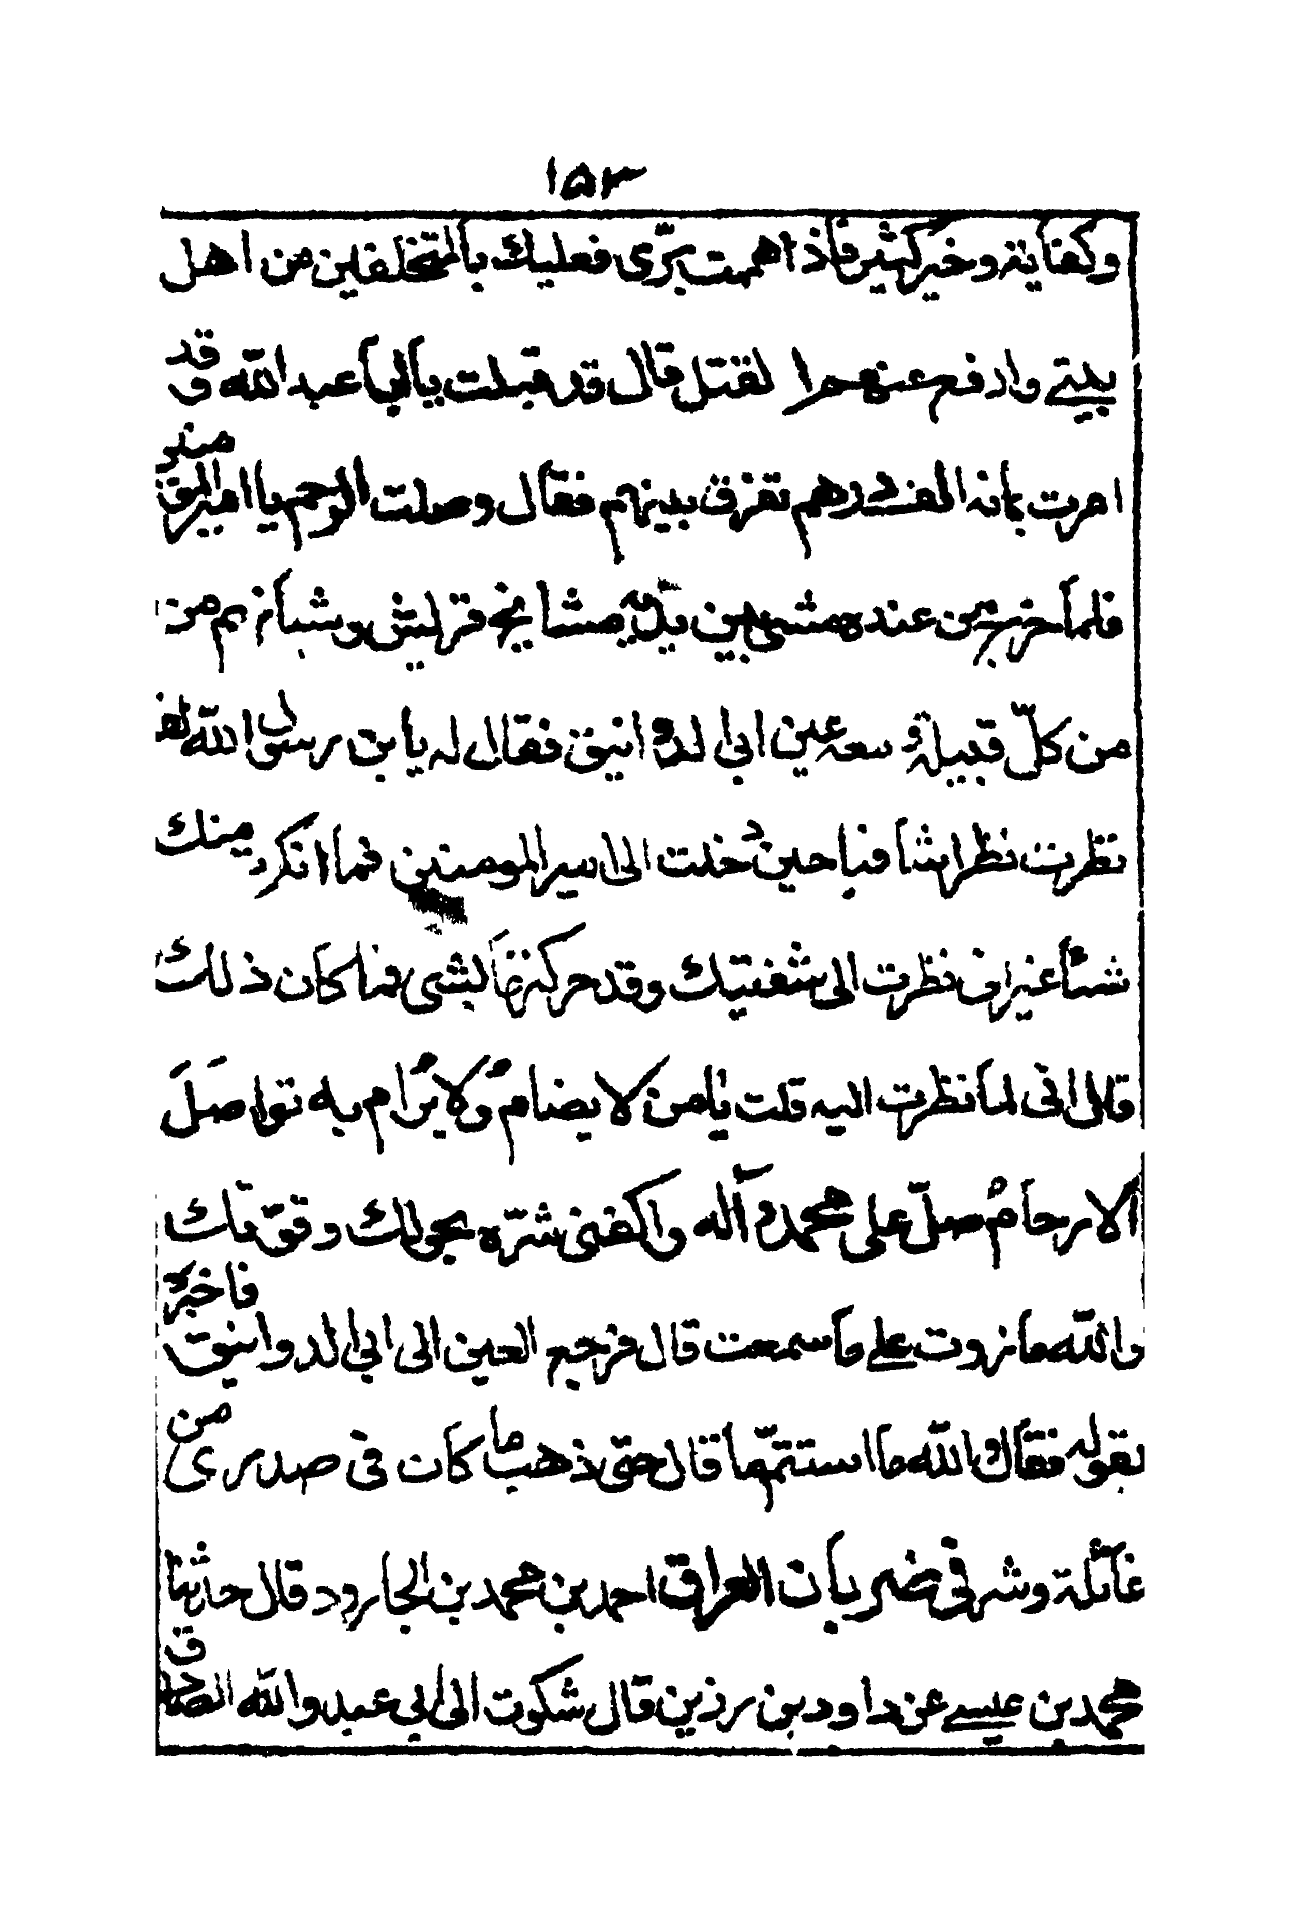 ١٥٣
وكفاية وخير كثير فاذا هممت ببرّى فعليك بالمتخلفين من اهل
بيتى وارفع عنهم القتل قال قد قبلت يا ابا عبد الله وقد
امرت بمائه الف درهم تفرق بينهم فقال وصلت الرحم يا امير المؤمنين
فلما خرج من عنده مشى بين يديه مشايخ قريش وشبانهم من
من كلّ قبيلة ومعه عين ابى الدوانيق فقال له يابن رسول الله لقد
نظرت نظرا شافيا حين دخلت الى امير المومنين فما انكرت منك
شيئا غير انى نظرت الى شفتيك وقد حركتهما بشى فما كان ذلك
قال انى لما نظرت اليه قلت يا من لا يضام ولا يرام به تواصل
الارحام صلّ على محمد وآله واكفنى شرّه بحولك وقوّتك
والله ما زدت على ما سمعت قال فرجع العين الى ابى الدوانيق فاخبره
بقوله فقال والله ما استتمّها قال حتى ذهب ما كان فى صدرى من
غائلة وشر فى ضربان العراق احمد بن محمد بن الجارود قال حدثنا
محمد بن عيسى عن داود بن رزين قال شكوت الى ابى عبد والله الصادق